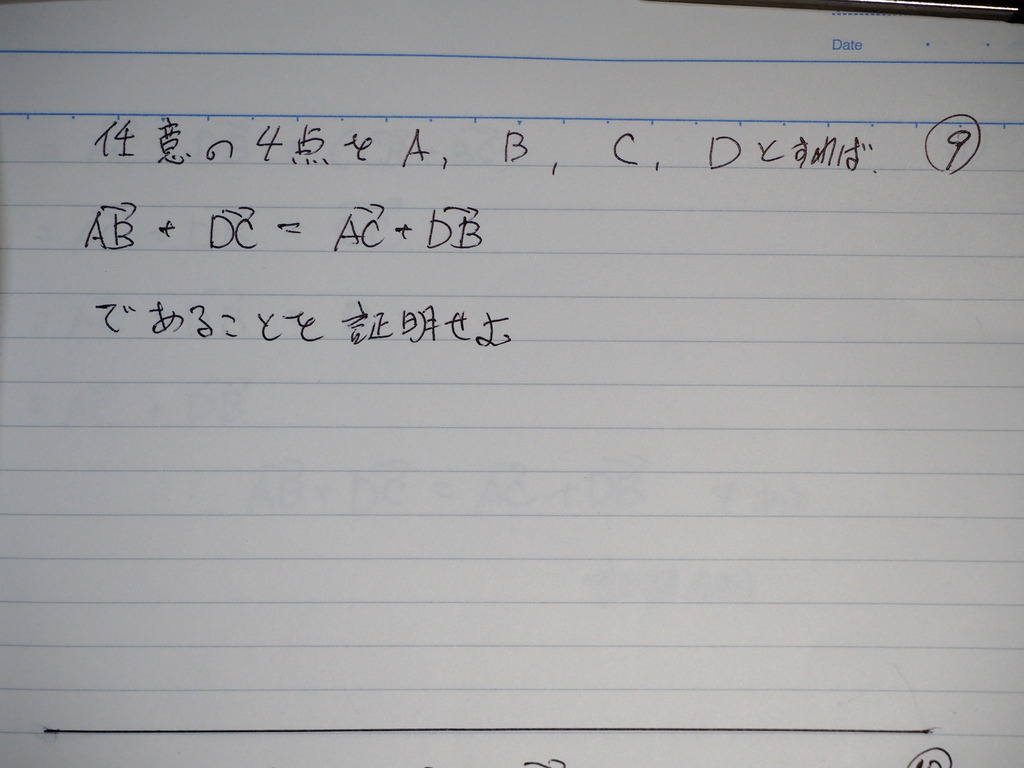 Date
任意の4点を A, B, C, Dとすれば. ⑨
→AB + →DC = →AC + →DB
であることを証明せよ